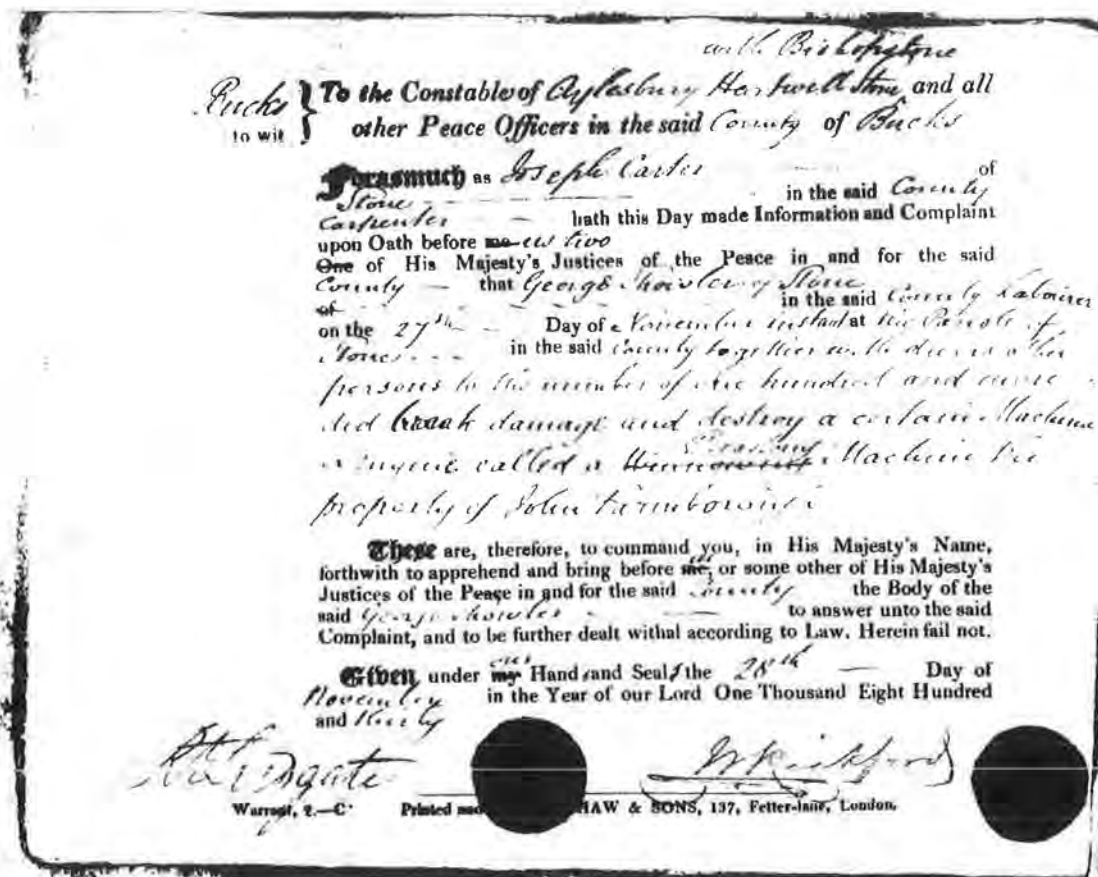 with Bishopstone
Bucks to wit } To the Constables of Aylesbury Hartwell Stone and all
other Peace Officers in the said County of Bucks
Forasmuch as Joseph Carter of
Stone in the said County
Carpenter hath this Day made Information and Complaint
upon Oath before me us two
One of His Majesty's Justices of the Peace in and for the said
County that George of Stone
of in the said County Labourer
on the 27th Day of November instant at the Parish of
Stone in the said County together with divers other
persons to the number of one hundred and more
did break damage and destroy a certain Machine
or Engine called a Winnowing Thrashing Machine the
property of John
These are, therefore, to command you, in His Majesty's Name,
forthwith to apprehend and bring before me, us or some other of His Majesty's
Justices of the Peace in and for the said County the Body of the
said George to answer unto the said
Complaint, and to be further dealt withal according to Law. Herein fail not.
Given under my our Hands and Seals the 28th Day of
November in the Year of our Lord One Thousand Eight Hundred
and thirty
Warrant, 2.—C Printed HAW & SONS, 137, Fetter-lane, London.